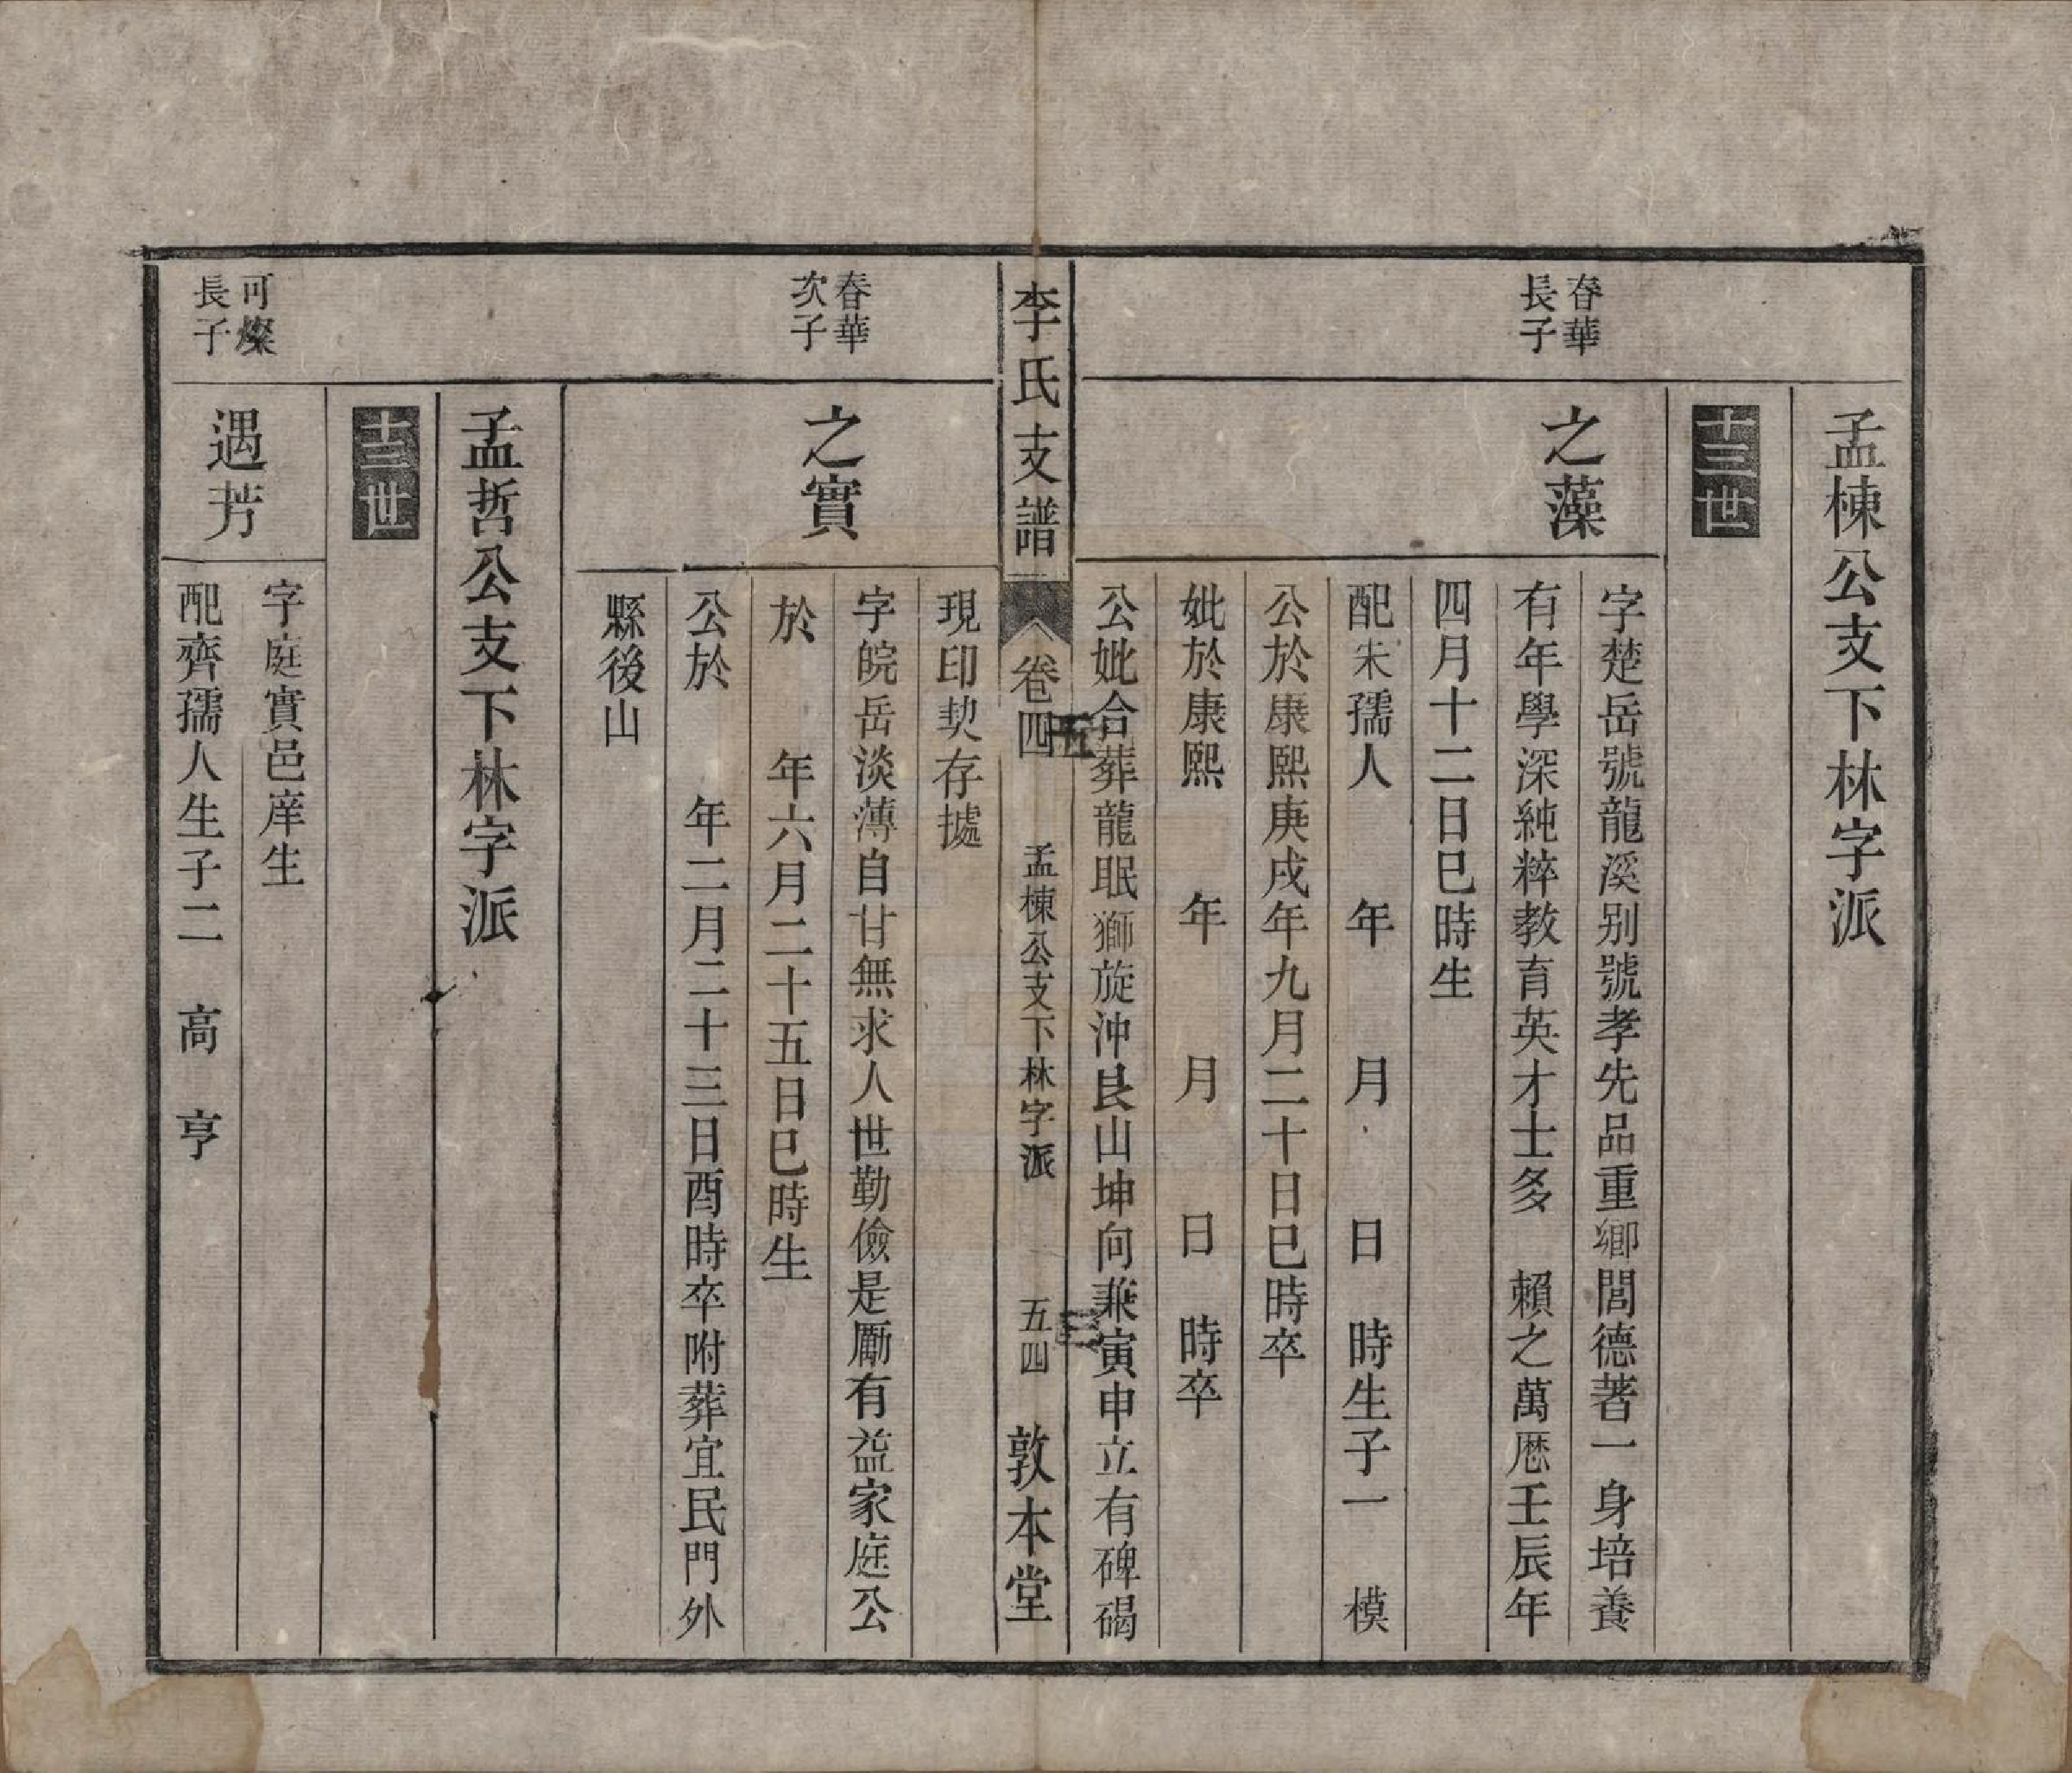 孟棟公支下林字派
十三世
春華
長子
之藻
字楚岳號龍溪别號孝先品重鄉閭德著一身培養
有年學深純粹教育英才士多　賴之萬厯壬辰年
四月十二日巳時生
配朱孺人　　年　　月　　日　時生子一　模
公於康熙庚戌年九月二十日巳時卒
妣於康熙　　年　　月　　日　時卒
公妣合葬龍眠獅旋沖艮山坤向兼寅申立有碑碣
李氏支譜
卷四
五
孟棟公支下林字派
五四
三
敦本堂
現印契存據
春華
次子
之實
字皖岳淡薄自甘無求人世勤儉是勵有益家庭公
於　　年六月二十五日巳時生
公於　　年二月二十三日酉時卒附葬宜民門外
縣後山
孟哲公支下林字派
十三世
可燦
長子
遇芳
字庭實邑庠生
配齊孺人生子二　高　亨